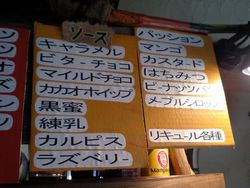 ソース
キャラメル
ビターチョコ
マイルドチョコ
カカオホイップ
黒蜜
練乳
カルピス
ラズベリー
パッション
マンゴ
カスタード
はちみつ
ピーナッツバ
メープルシロッ
リキュール各種